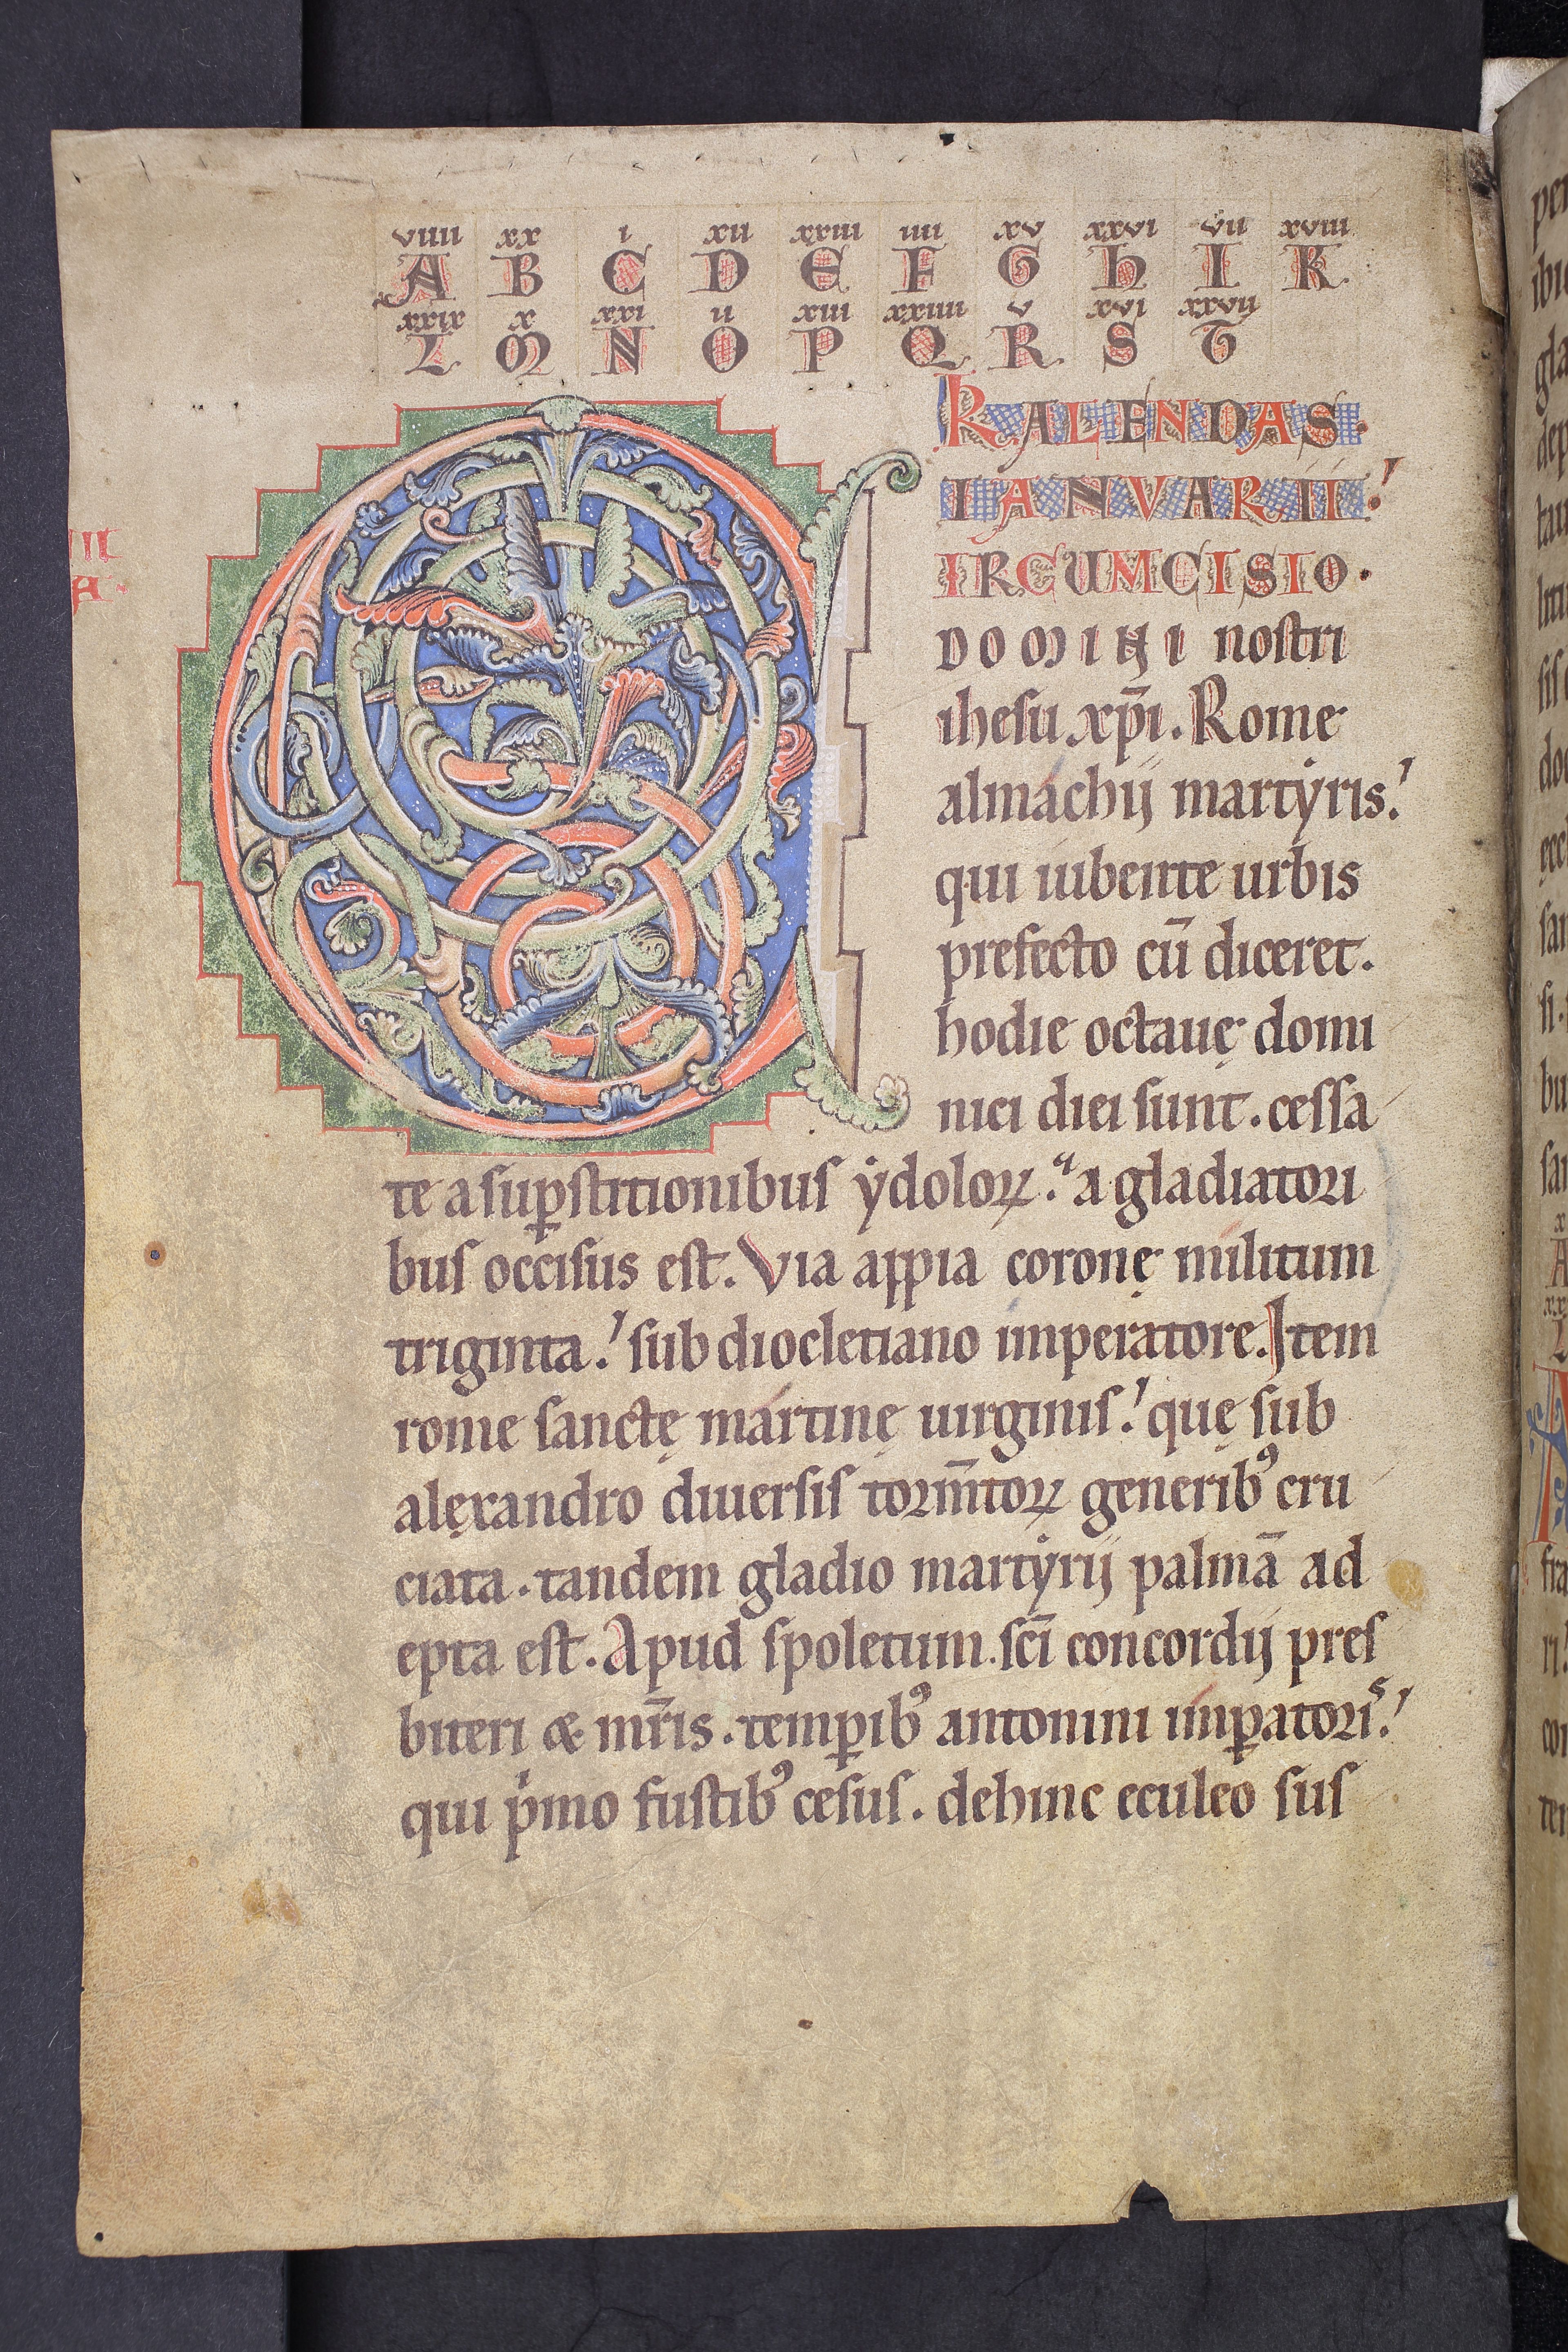 viiii xx i xii xxiii iiii xv xxvi vii xviii
A B C D E F G H I K
xxix x xxi ii xiii xxiiii v xvi xxvij
L M N O P Q R S T
KALENDAS.
IANVARII.
CIRCUMCISIO.
DOMINI nostri
ihesu xp̄i. Rome
almachij martẏris.
qui iubente urbis
prefecto cū diceret.
hodie octauę domi
nici diei sunt. cessa
te a suꝑstitionibus ẏdoloꝝ. a gladiatori
bus occisus est. Via appia coronę militum
triginta. sub diocletiano imperatore. Item
rome sanctę martinę uirginis. quę sub
alęxandro diuersis torm̄toꝝ generibꝰ cru
ciata. tandem gladio martẏrij palmā ad
epta est. Apud spoletum. sc̄i concordij pres
biteri & mr̄is. temꝑibꝰ antonini imꝑatoriˢ.
qui pͥmo fustibꝰ cesus. dehinc eculeo sus